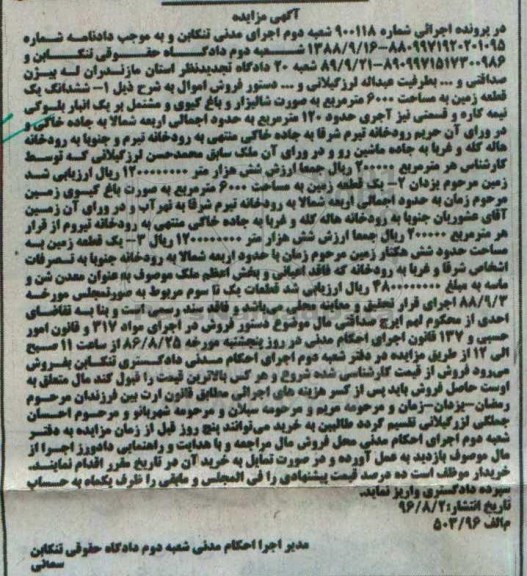 آگهی مزایده
در پرونده اجرائی شماره ۹۰۰۱۱۸ شعبه دوم اجرای مدنی تنکابن و به موجب دادنامه شماره
۸۸۰۹۹۷۱۹۲۰۲۰۱۰۹۵-۱۳۸۸/۹/۱۶ شعبه دوم دادگاه حقوقی تنکابن و
۸۹۰۹۹۷۱۵۱۷۳۰۰۹۸۶-۸۹/۹/۲۱ شعبه ۲۰ دادگاه تجدیدنظر استان مازندران له بیژن
صداقتی و ... بطرفیت عبداله لزرگیلانی و ... دستور فروش اموال به شرح ذیل ۱- ششدانگ یک
قطعه زمین به مساحت ۶۰۰۰ مترمربع به صورت شالیزار و باغ کیوی و مشتمل بر یک انبار بلوکی
نیمه کاره و قسمتی نیز آجری حدود ۱۲۰ مترمربع به حدود اجمالی اربعه شمالا به جاده خاکی و
در ورای آن حریم رودخانه تیرم شرقا به جاده خاکی منتهی به رودخانه تیرم و جنوبا به رودخانه
هاله کله و غربا به جاده ماشین رو و در ورای آن ملک سابق محمدحسن لزرگیلانی که توسط
کارشناس هر مترمربع ۲۰۰۰۰۰ ریال جمعا ارزش شش هزار متر ۱۲۰۰۰۰۰۰۰۰ ریال ارزیابی شد
زمین مرحوم یزدان ۲- یک قطعه زمین به مساحت ۶۰۰۰ مترمربع به صورت باغ کیوی زمین
مرحوم زمان به حدود اجمالی اربعه شمالا به رودخانه تیرم شرقا به نهرآب و در ورای آن زمین
آقای عشوریان جنوبا به رودخانه هاله کله و غربا به جاده خاکی منتهی به رودخانه تیروم از قرار
هر مترمربع ۲۰۰۰۰۰ ریال جمعا ارزش شش هزار متر ۱۲۰۰۰۰۰۰۰۰ ریال ۳- یک قطعه زمین به
مساحت حدود شش هکتار زمین مرحوم زمان با حدود اربعه شمالا به رودخانه جنوبا به تصرفات
اشخاص شرقا و غربا به رودخانه که فاقد اعیانی و بخش اعظم ملک موصوف به عنوان معدن شن و
ماسه به مبلغ ۴۸۰۰۰۰۰۰۰۰ ریال ارزیابی شد قطعات یک تا سوم مربوط به صورتمجلس مورخه
۸۸/۹/۳ اجرای قرار تحقیق و معاینه محلی می‌باشد و فاقد سند رسمی است و بنا به تقاضای
احدی از محکوم لهم ایرج صداقتی مال موضوع دستور فروش در اجرای مواد ۳۱۷ و قانون امور
حسبی و ۱۳۷ قانون اجرای احکام مدنی در روز پنجشنبه مورخه ۹۶/۸/۲۵ از ساعت ۱۱ صبح
الی ۱۲ از طریق مزایده در دفتر شعبه دوم اجرای احکام مدنی دادگستری تنکابن بفروش
می‌رود فروش از قیمت کارشناسی شده شروع و هر کس بالاترین قیمت را قبول کند مال متعلق به
اوست حاصل فروش باید پس از کسر هزینه های اجرائی مطابق قانون ارث بین فرزندان مرحوم
رمضان-یزدان-زمان و مرحومه مریم و مرحومه سبلان و مرحومه شهربانو و مرحوم احسان
جملگی لزرگیلانی تقسیم گردد طالبین به خرید می‌توانند پنج روز قبل از زمان مزایده به دفتر
شعبه دوم اجرای احکام مدنی محل فروش مال مراجعه و با هدایت و راهنمایی دادورز اجرا از
مال موصوف بازدید به عمل آورده و در صورت تمایل به خرید آن در تاریخ مقرر اقدام نمایند.
خریدار موظف است ده درصد قیمت پیشنهادی را فی المجلس و مابقی را ظرف یکماه به حساب
سپرده دادگستری واریز نماید.
تاریخ انتشار: ۹۶/۸/۲
م‌الف ۵۰۳/۹۶
مدیر اجرا احکام مدنی شعبه دوم دادگاه حقوقی تنکابن
سمائی